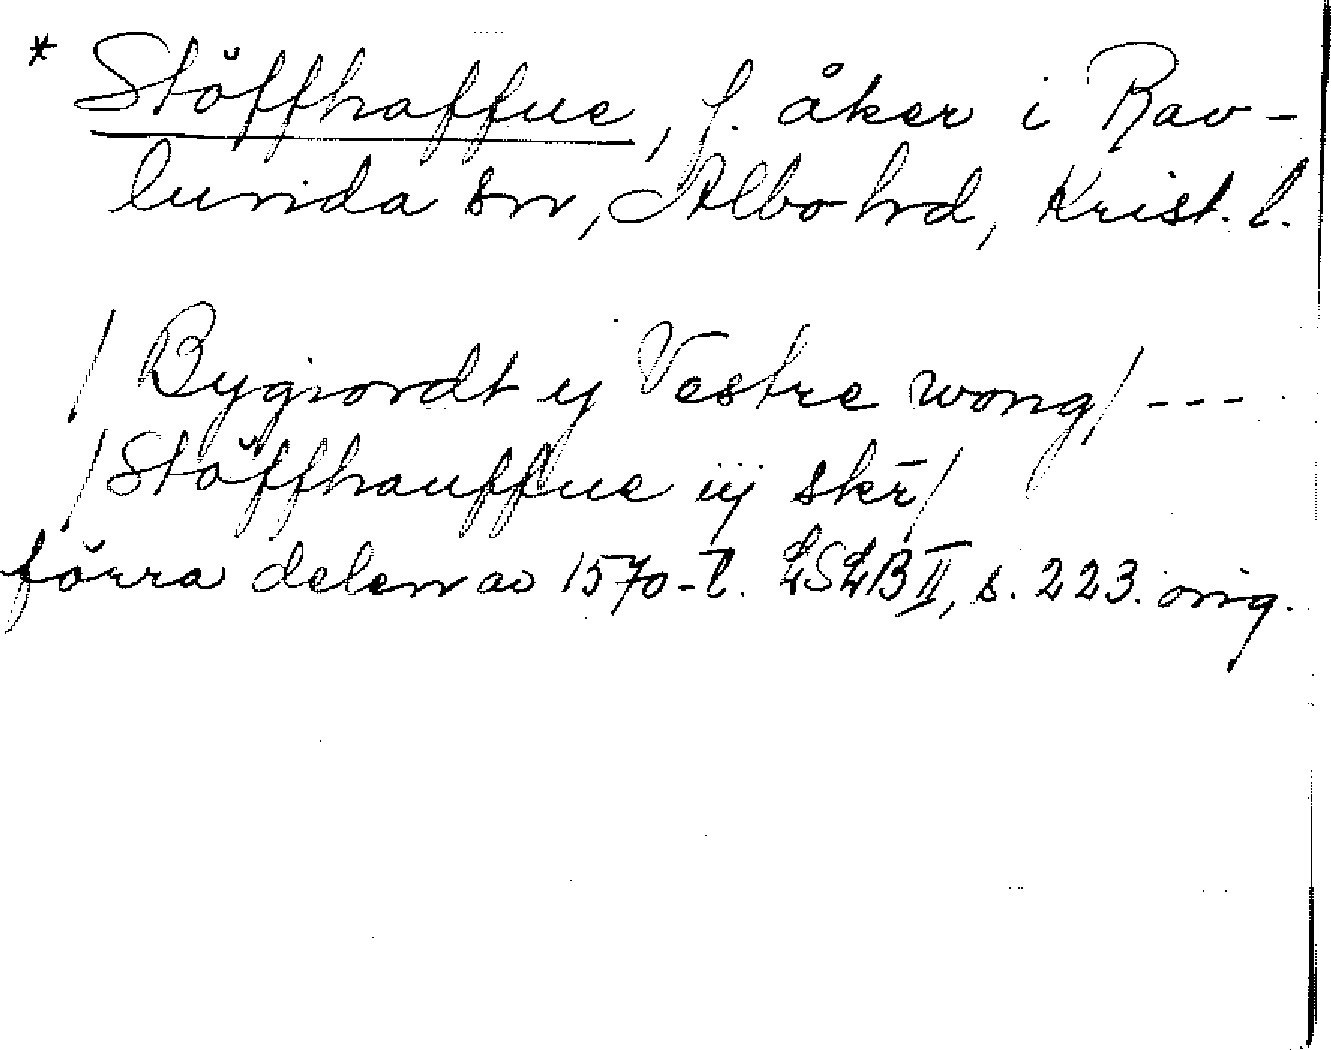 * Stöffhaffue, f. åker i Rav-
lunda sn, Albo hd, Krist. l.
/ Bygiordt ij Vestre wong / ---
/ Stöffhauffue iij skr̄ /
förra delen av 1570-t. LSLB II, s. 223. orig.